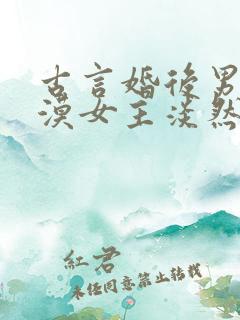 古言婚后男
漠女主淡然
紅君
未经同意禁止转载